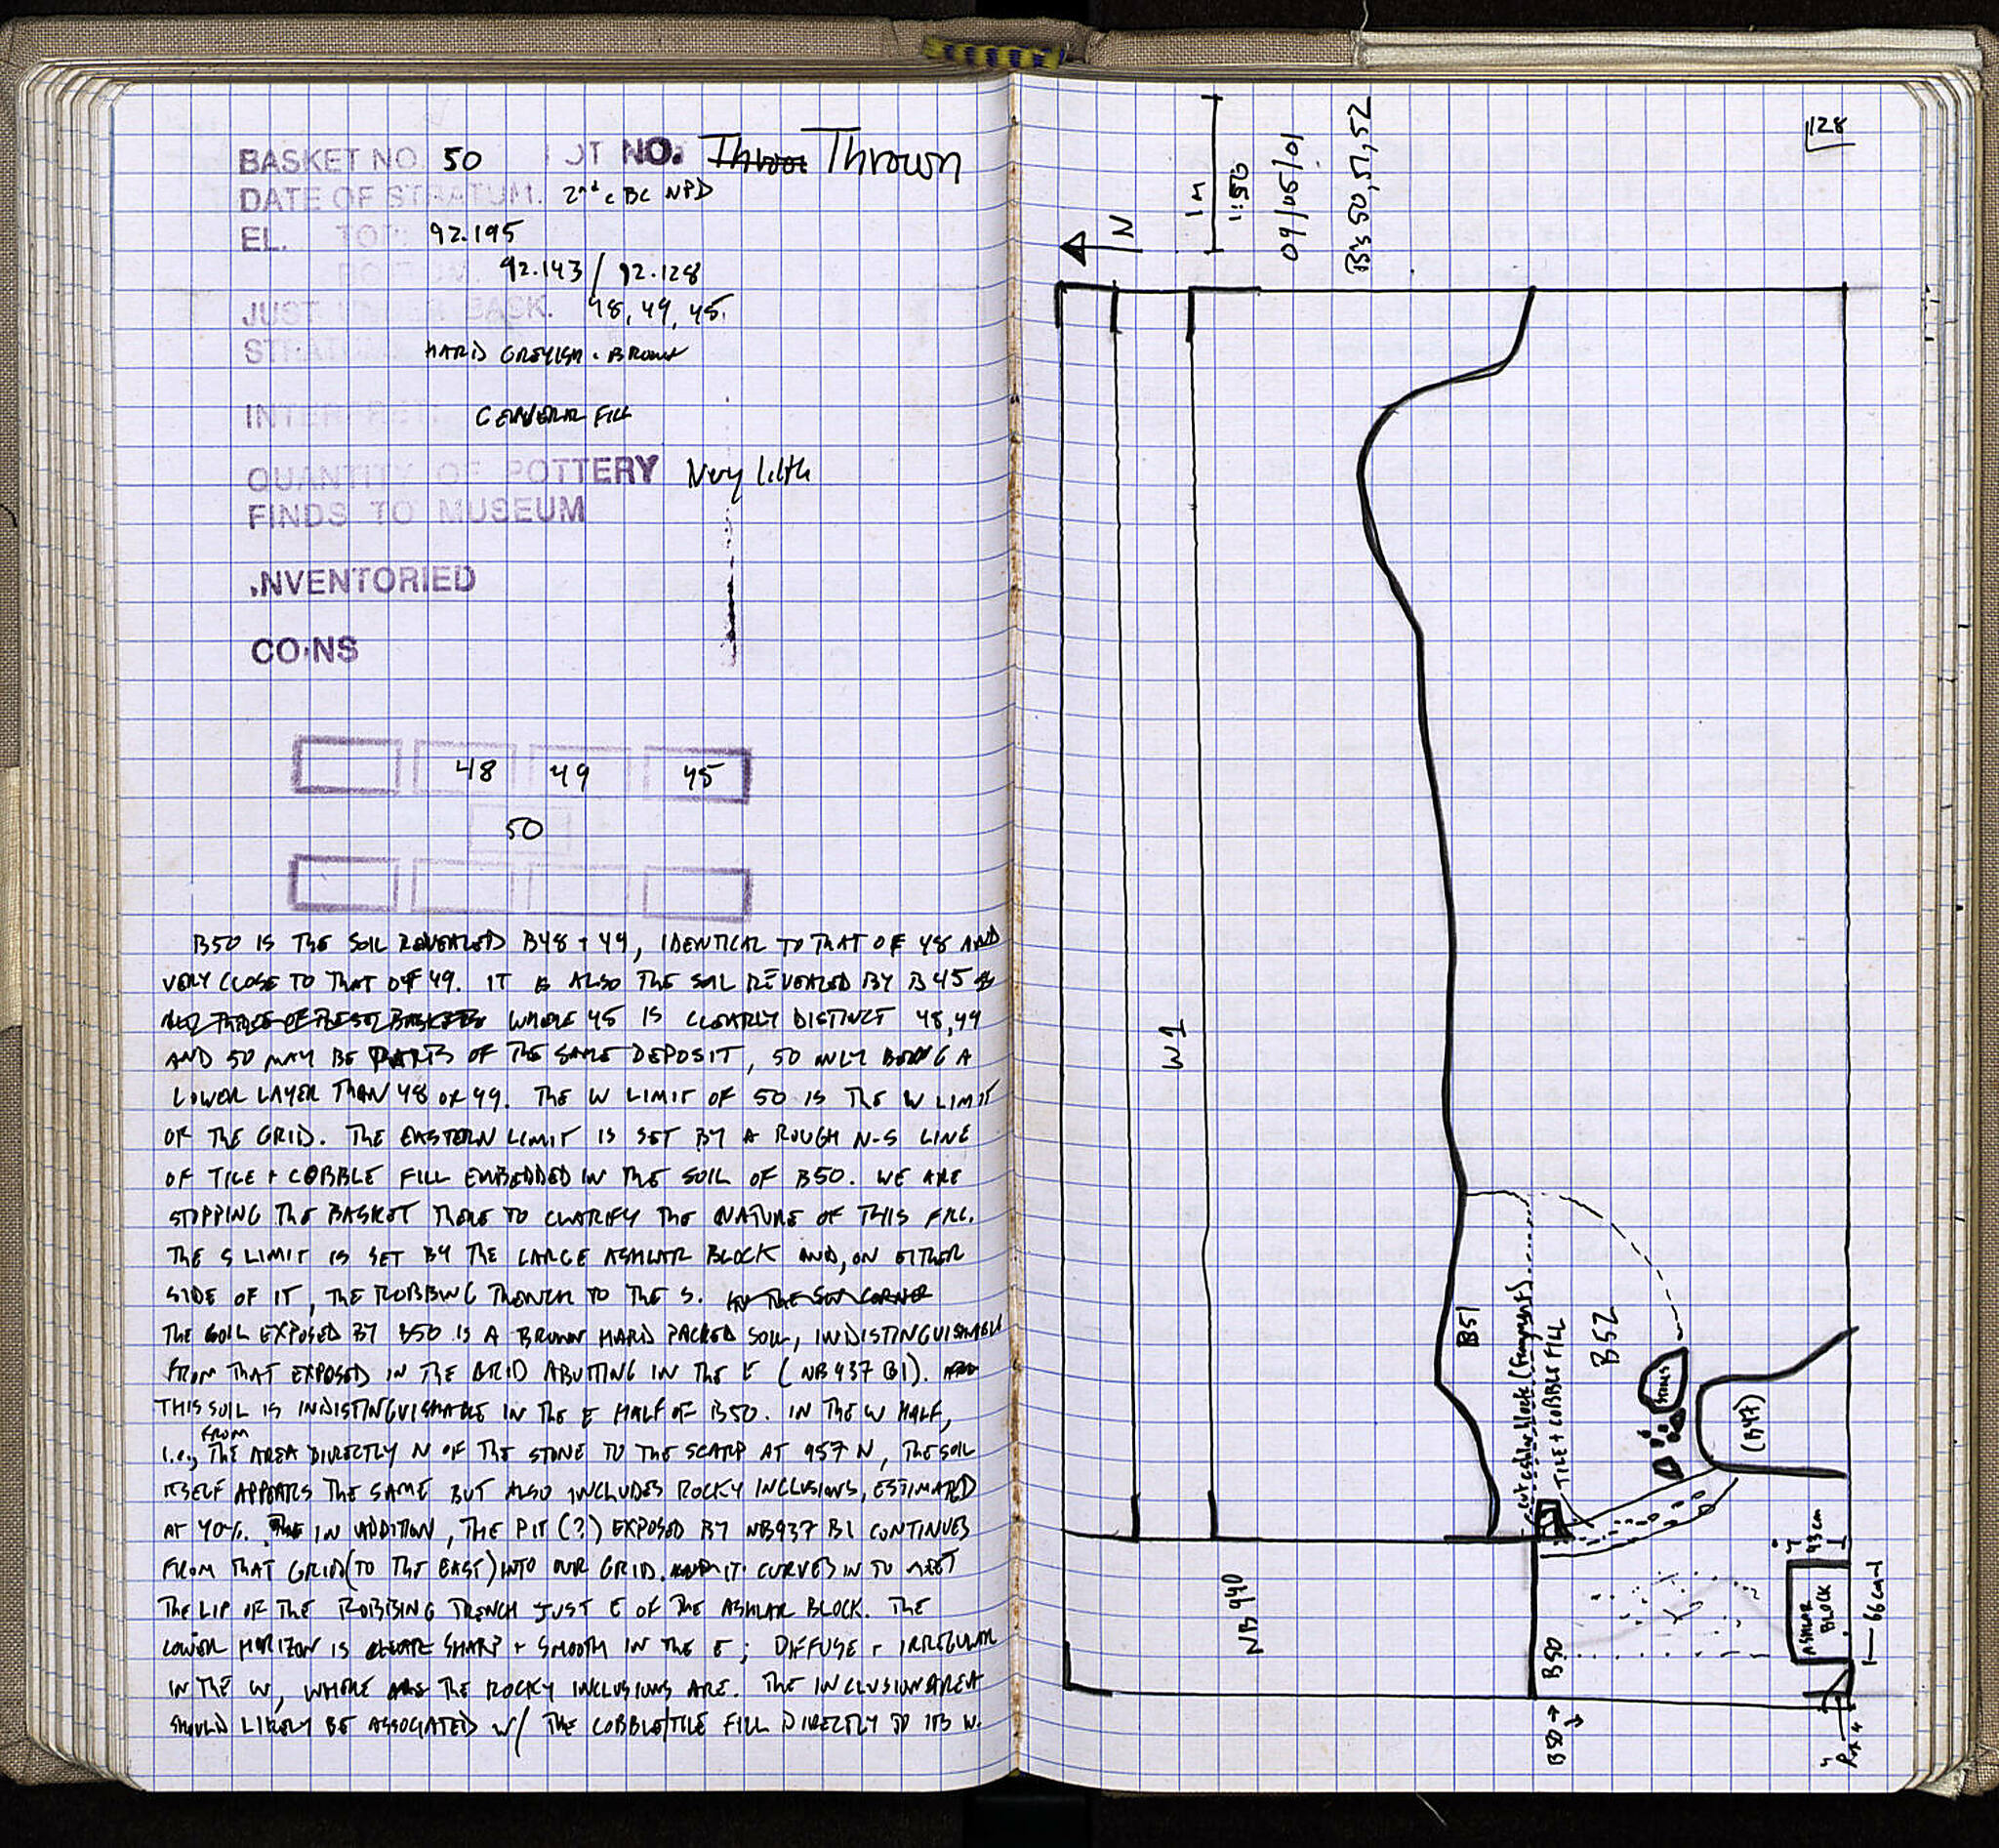 BASKET NO. 50 LOT NO. Thrown
DATE OF STRATUM. 2nd c BC NPD
EL. TOP: 92.195
BOTTOM. 92.143 / 92.128
JUST UNDER BASK. 48, 49, 45.
STRATUM HARD GREYISH-BROWN
INTERPRET: GENERAL FILL
QUANTITY OF POTTERY Very little
FINDS TO MUSEUM
INVENTORIED
COINS
48 49 45
50
B50 IS THE SOIL REVEALED B48 + 49, IDENTICAL TO THAT OF 48 AND
VERY CLOSE TO THAT OF 49. IT IS ALSO THE SOIL REVEALED BY B45
WHERE 45 IS CLEARLY DISTINCT 48, 49
AND 50 MAY BE PARTS OF THE SAME DEPOSIT, 50 ONLY BEING A
LOWER LAYER THAN 48 OR 49. THE W LIMIT OF 50 IS THE W LIMIT
OF THE GRID. THE EASTERN LIMIT IS SET BY A ROUGH N-S LINE
OF TILE + COBBLE FILL EMBEDDED IN THE SOIL OF B50. WE ARE
STOPPING THE BASKET THERE TO CLARIFY THE NATURE OF THIS FILL.
THE S LIMIT IS SET BY THE LARGE ASHLAR BLOCK AND, ON EITHER
SIDE OF IT, THE ROBBING TRENCH TO THE S. IN THE SW CORNER
THE SOIL EXPOSED BY B50 IS A BROWN HARD PACKED SOIL, INDISTINGUISHABLE
FROM THAT EXPOSED IN THE GRID ABUTTING IN THE E (NB937 B1).
THIS SOIL IS INDISTINGUISHABLE IN THE E HALF OF B50. IN THE W HALF,
i.e., FROM THE AREA DIRECTLY N OF THE STONE TO THE SCARP AT 957 N, THE SOIL
ITSELF APPEARS THE SAME BUT ALSO INCLUDES ROCKY INCLUSIONS, ESTIMATED
AT 40%. IN ADDITION, THE PIT (?) EXPOSED BY NB937 B1 CONTINUES
FROM THAT GRID (TO THE EAST) INTO OUR GRID. IT CURVES IN TO MEET
THE LIP OF THE ROBBING TRENCH JUST E OF THE ASHLAR BLOCK. THE
LOWER HORIZON IS SHARP + SMOOTH IN THE E; DIFFUSE + IRREGULAR
IN THE W, WHERE THE ROCKY INCLUSIONS ARE. THE INCLUSION AREA
SHOULD LIKELY BE ASSOCIATED W/ THE COBBLE/TILE FILL DIRECTLY TO ITS W.
128
N
1 M
1:50
09/05/01
B's 50, 51, 52
W1
B51
cut ashlar block (fragment)
TILE + COBBLE FILL
B52
(B47)
NB 940
B50
ASHLAR BLOCK
43 cm
66 cm
B50 →